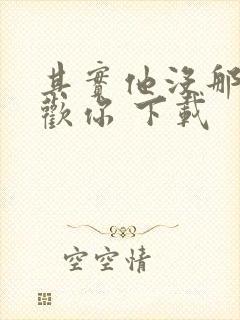 其實他沒那
歡你 下載
空空情